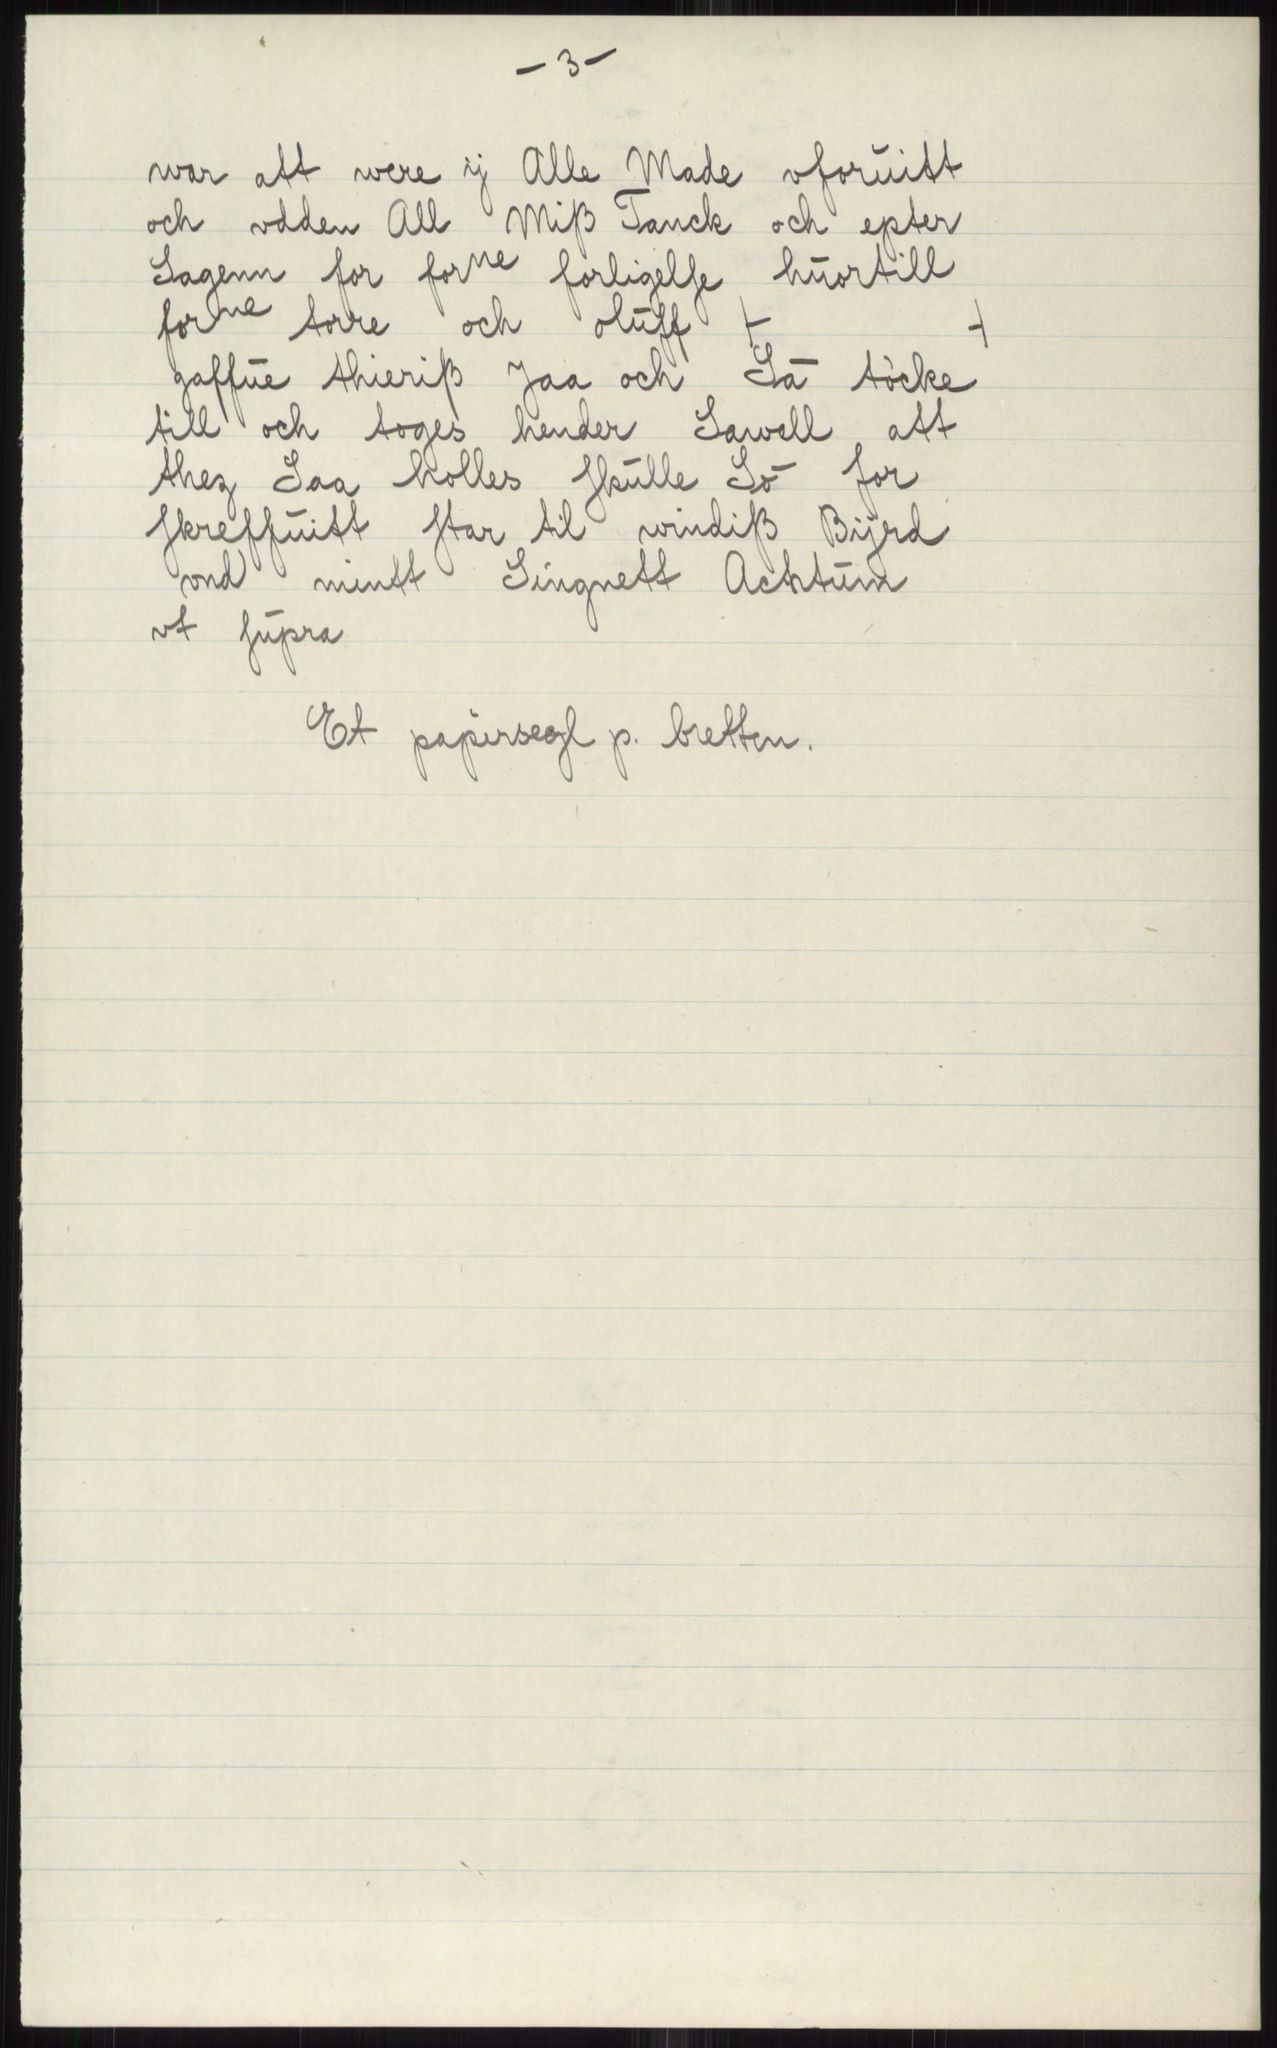 - 3 -
war att were ij Alle Made vforuitt
och vdden All Miß Tanck och epter
Sagenn for forne forligelse huortill
forne torre och oluff + +
gaffue thieriß Jaa och Sa töcke
till och toges hender Sawell att
thez Saa holles skulle So for
skreffuitt star til windiß Bijrd
vnd mintt Singnett Actum
vt supra
Et papirsegl p. bretten.